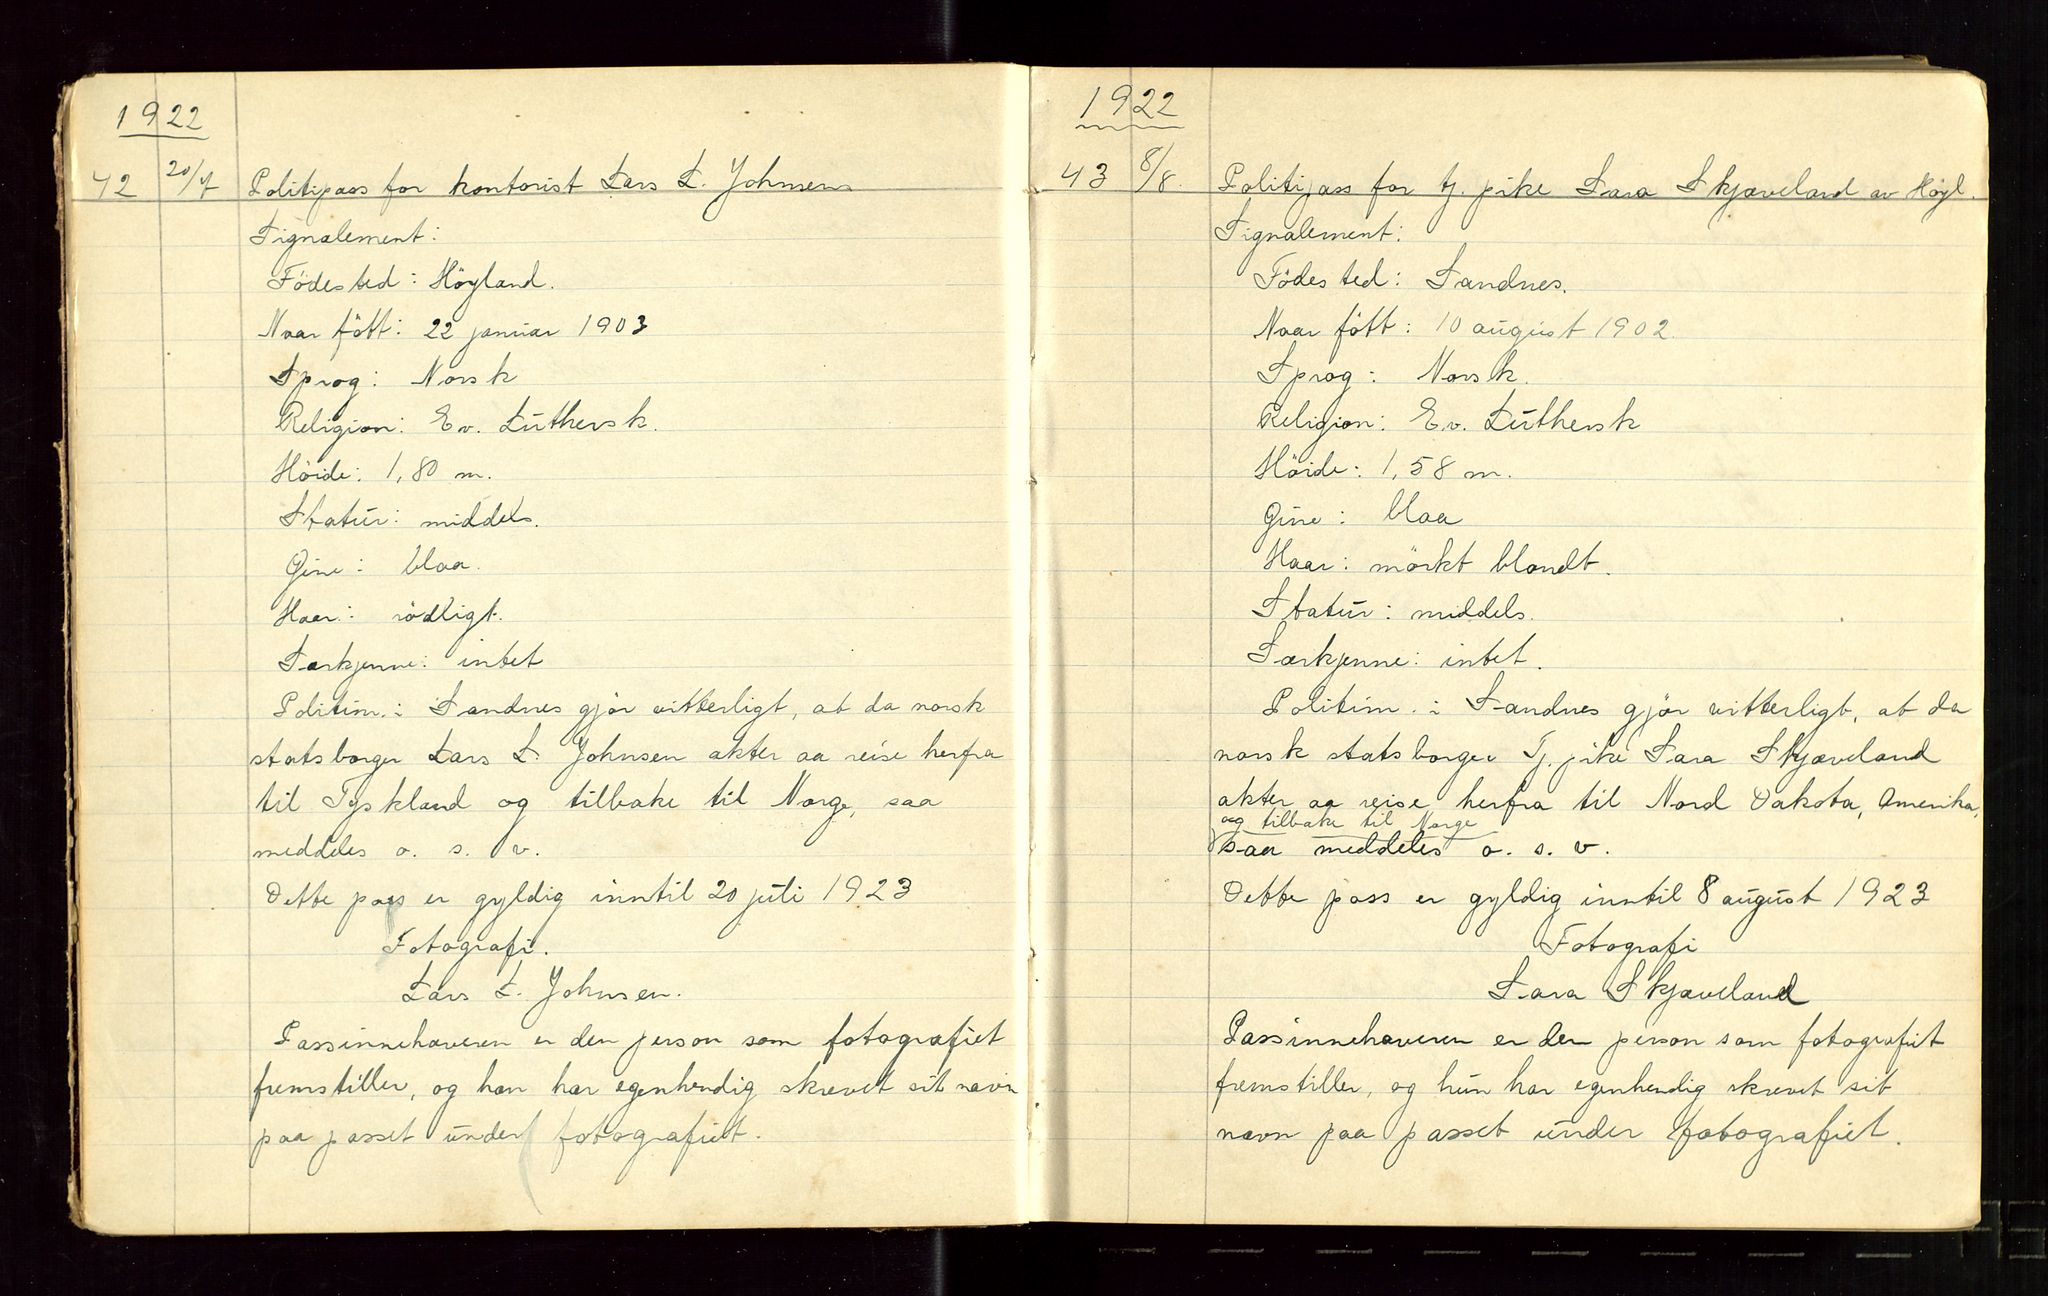 1922
42 20/7 Politipass for kontorist Lars L. Johnsen
Signalement:
Födested: Höyland.
Naar fött: 22 januar 1903
Sprog: Norsk
Religion: Ev. Luthersk.
Höide: 1,80 m.
Statur: middels.
Öine: blaa.
Haar: rödligt.
Særkjenne: intet
Politim. i Sandnes gjör vitterligt, at da norsk
statsborger Lars L. Johnsen akter aa reise herfra
til Tyskland og tilbake til Norge, saa
meddeles o. s. v.
Dette pass er gyldig inntil 20 juli 1923
Fotografi.
Lars L. Johnsen.
Passinnehaveren er den person som fotografiet
fremstiller, og han har egenhendig skrevet sit navn
paa passet under fotografiet.
1922
43 8/8. Politipass for tj. pike Sara Skjæveland av Höyl.
Signalement:
Födested: Sandnes.
Naar fött: 10 august 1902.
Sprog: Norsk.
Religion: Ev. Luthersk
Höide: 1,58 m.
Öine: blaa
Haar: mörkt blondt.
Statur: middels.
Særkjenne: intet.
Politim. i Sandnes gjör vitterligt, at da
norsk statsborger Tj. pike Sara Skjæveland
akter aa reise herfra til Nord Dakota, Amerika,
og tilbake til Norge
saa meddeles o. s. v.
Dette pass er gyldig inntil 8 august 1923
Fotografi
Sara Skjæveland
Passinnehaveren er den person som fotografiet
fremstiller, og hun har egenhendig skrevet sit
navn paa passet under fotografiet.